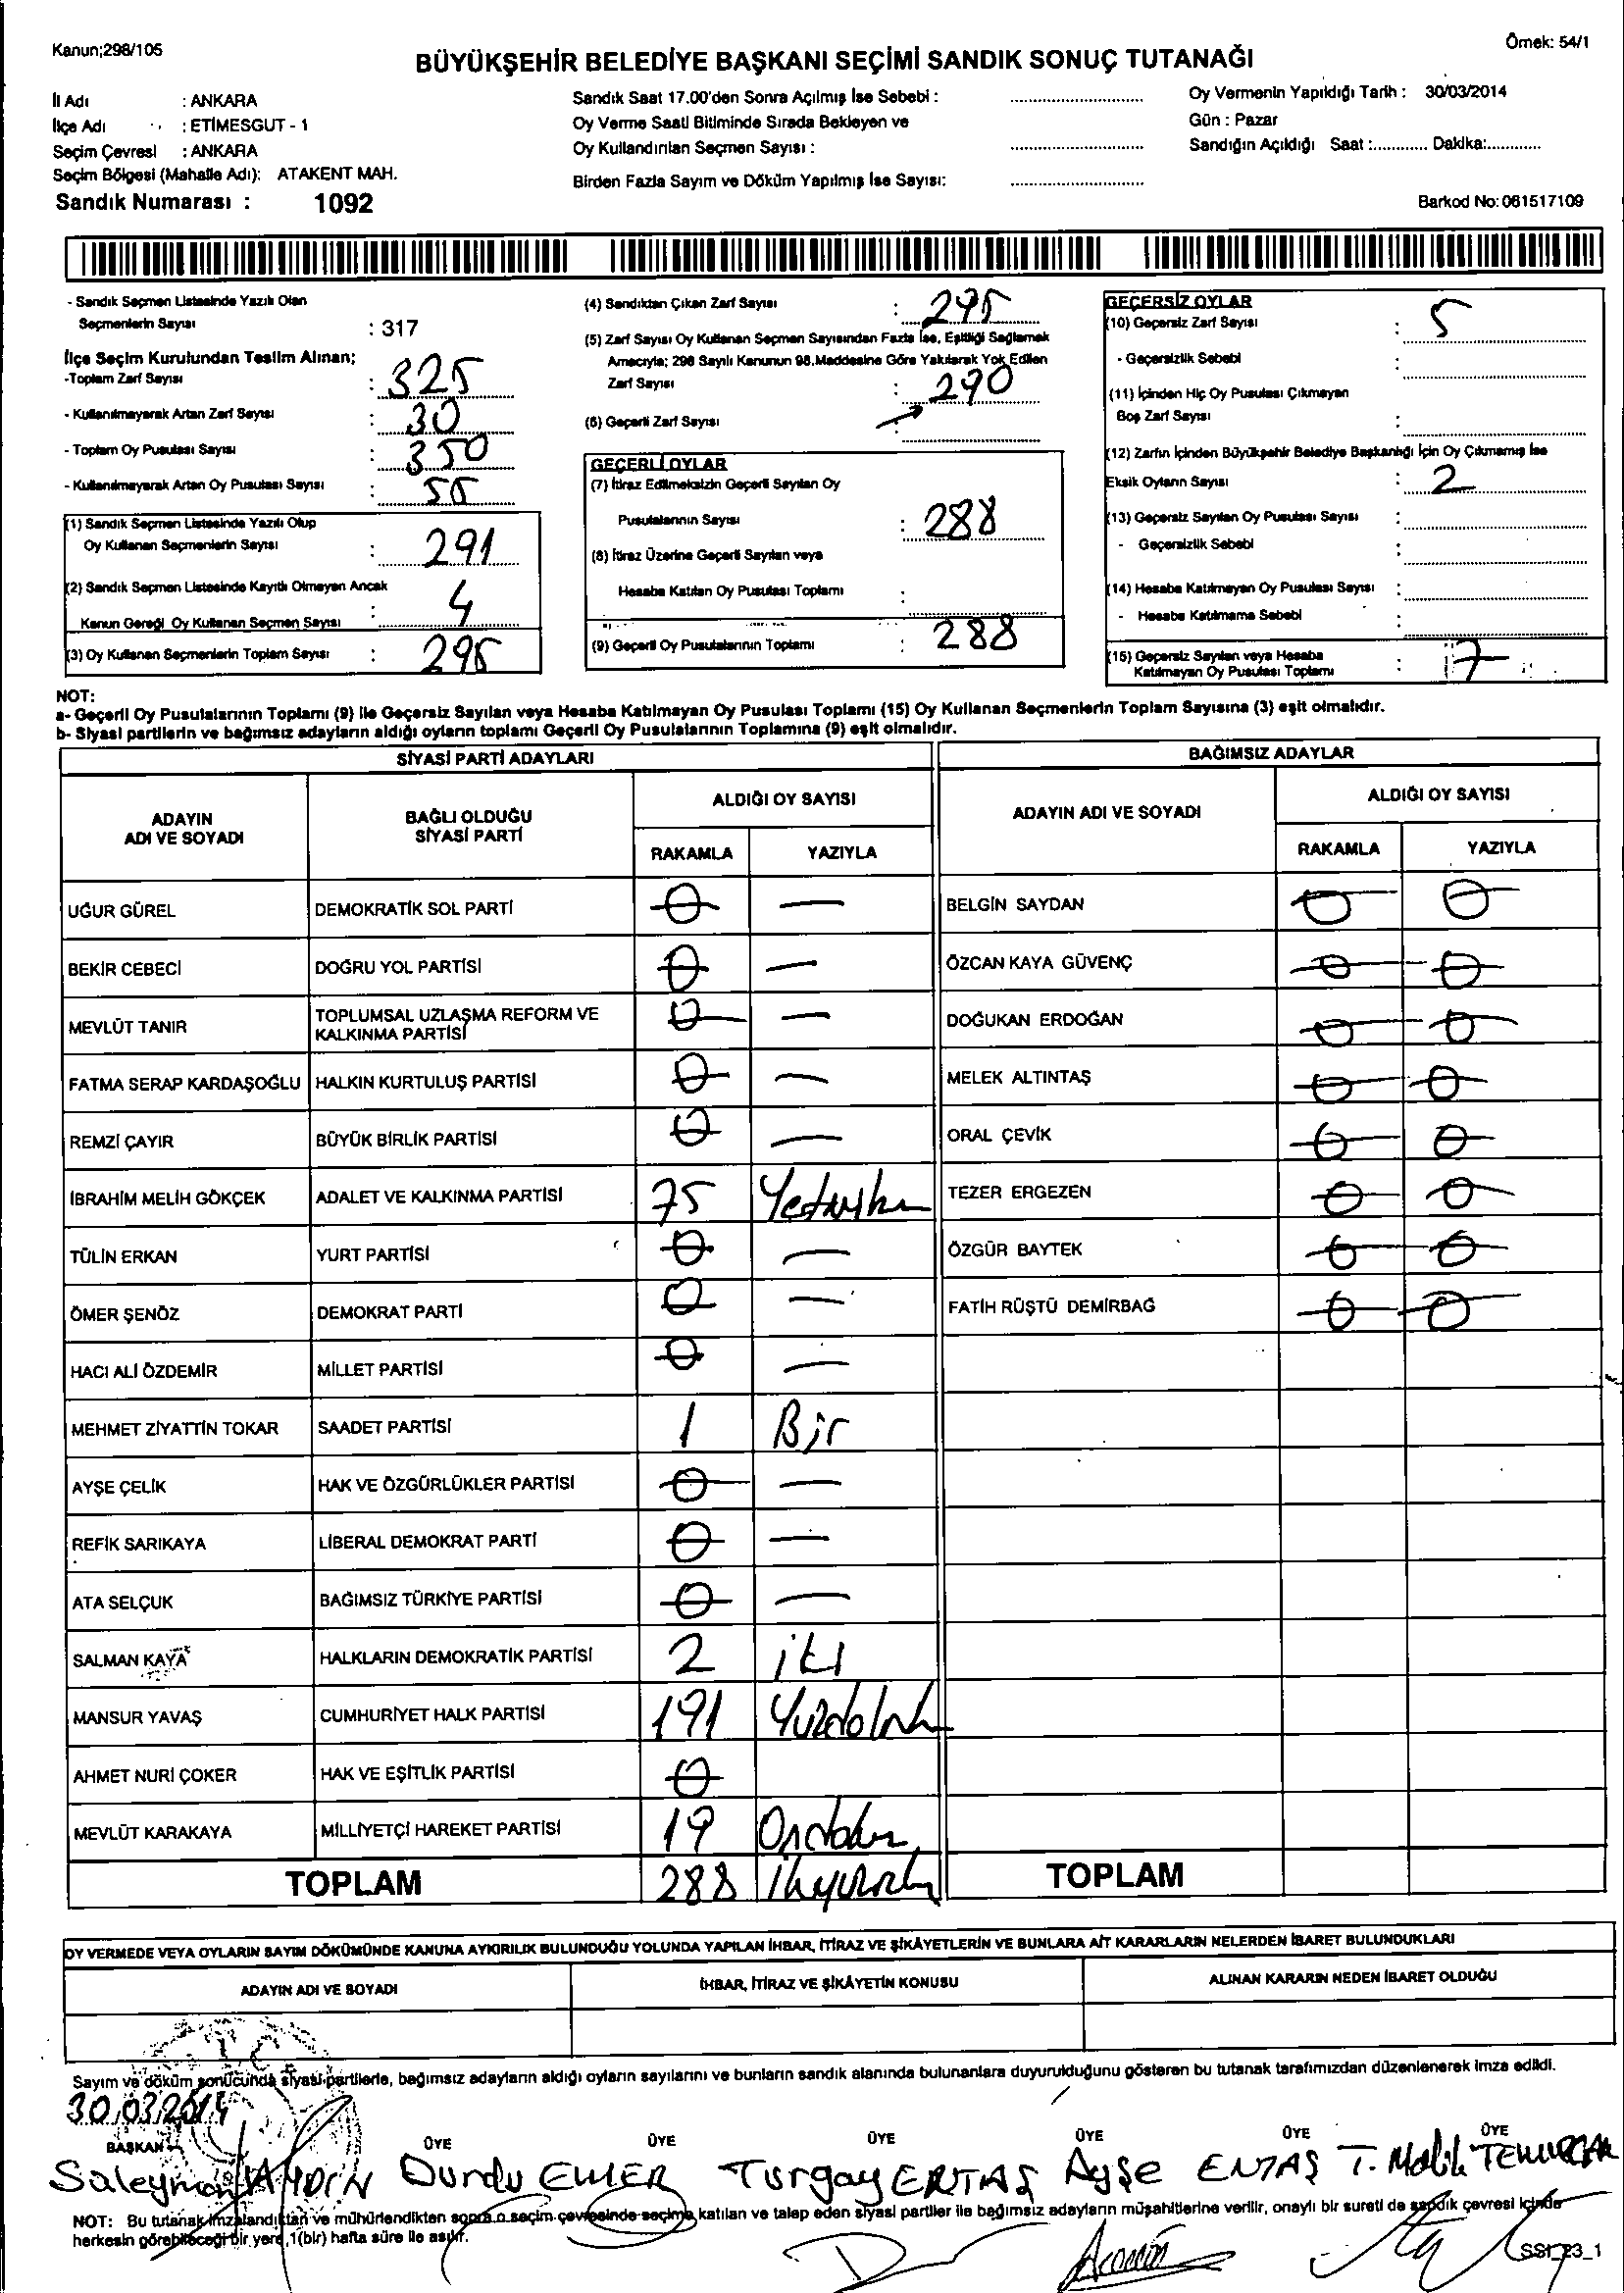 Kanun;298/105
Örnek: 54/1
BÜYÜKŞEHİR BELEDİYE BAŞKANI SEÇİMİ SANDIK SONUÇ TUTANAĞI
İl Adı : ANKARA
İlçe Adı : ETİMESGUT - 1
Seçim Çevresi : ANKARA
Seçim Bölgesi (Mahalle Adı): ATAKENT MAH.
Sandık Numarası : 1092
Sandık Saat 17.00'den Sonra Açılmış İse Sebebi :
Oy Verme Saati Bitiminde Sırada Bekleyen ve
Oy Kullandırılan Seçmen Sayısı :
Birden Fazla Sayım ve Döküm Yapılmış İse Sayısı:
Oy Vermenin Yapıldığı Tarih : 30/03/2014
Gün : Pazar
Sandığın Açıldığı Saat :............ Dakika:............
Barkod No: 061517109
- Sandık Seçmen Listesinde Yazılı Olan
Seçmenlerin Sayısı : 317
İlçe Seçim Kurulundan Teslim Alınan;
-Toplam Zarf Sayısı : 325
- Kullanılmayarak Artan Zarf Sayısı : 30
- Toplam Oy Pusulası Sayısı : 350
- Kullanılmayarak Artan Oy Pusulası Sayısı : 55
(1) Sandık Seçmen Listesinde Yazılı Olup
Oy Kullanan Seçmenlerin Sayısı : 291
(2) Sandık Seçmen Listesinde Kayıtlı Olmayan Ancak
Kanun Gereği Oy Kullanan Seçmen Sayısı : 4
(3) Oy Kullanan Seçmenlerin Toplam Sayısı : 295
(4) Sandıktan Çıkan Zarf Sayısı : 295
(5) Zarf Sayısı Oy Kullanan Seçmen Sayısından Fazla İse, Eşitliği Sağlamak
Amacıyla; 298 Sayılı Kanunun 98.Maddesine Göre Yakılarak Yok Edilen
Zarf Sayısı : 290
(6) Geçerli Zarf Sayısı :
GEÇERLİ OYLAR
(7) İtiraz Edilmeksizin Geçerli Sayılan Oy
Pusulalarının Sayısı : 288
(8) İtiraz Üzerine Geçerli Sayılan veya
Hesaba Katılan Oy Pusulası Toplamı :
(9) Geçerli Oy Pusulalarının Toplamı : 288
GEÇERSİZ OYLAR
(10) Geçersiz Zarf Sayısı : 5
- Geçersizlik Sebebi :
(11) İçinden Hiç Oy Pusulası Çıkmayan
Boş Zarf Sayısı :
(12) Zarfın İçinden Büyükşehir Belediye Başkanlığı İçin Oy Çıkmamış İse
Eksik Oyların Sayısı : 2
(13) Geçersiz Sayılan Oy Pusulası Sayısı :
- Geçersizlik Sebebi :
(14) Hesaba Katılmayan Oy Pusulası Sayısı :
- Hesaba Katılmama Sebebi :
(15) Geçersiz Sayılan veya Hesaba
Katılmayan Oy Pusulası Toplamı : 7
NOT:
a- Geçerli Oy Pusulalarının Toplamı (9) ile Geçersiz Sayılan veya Hesaba Katılmayan Oy Pusulası Toplamı (15) Oy Kullanan Seçmenlerin Toplam Sayısına (3) eşit olmalıdır.
b- Siyasi partilerin ve bağımsız adayların aldığı oyların toplamı Geçerli Oy Pusulalarının Toplamına (9) eşit olmalıdır.
SİYASİ PARTİ ADAYLARI
BAĞIMSIZ ADAYLAR
ADAYIN ADI VE SOYADI
BAĞLI OLDUĞU SİYASİ PARTİ
ALDIĞI OY SAYISI
RAKAMLA YAZIYLA
ADAYIN ADI VE SOYADI
ALDIĞI OY SAYISI
RAKAMLA YAZIYLA
UĞUR GÜREL DEMOKRATİK SOL PARTİ 0 — BELGİN SAYDAN 0 0
BEKİR CEBECİ DOĞRU YOL PARTİSİ 0 — ÖZCAN KAYA GÜVENÇ 0 0
MEVLÜT TANIR TOPLUMSAL UZLAŞMA REFORM VE KALKINMA PARTİSİ 0 — DOĞUKAN ERDOĞAN 0 0
FATMA SERAP KARDAŞOĞLU HALKIN KURTULUŞ PARTİSİ 0 — MELEK ALTINTAŞ 0 0
REMZİ ÇAYIR BÜYÜK BİRLİK PARTİSİ 0 — ORAL ÇEVİK 0 0
İBRAHİM MELİH GÖKÇEK ADALET VE KALKINMA PARTİSİ 75 TEZER ERGEZEN 0 0
TÜLİN ERKAN YURT PARTİSİ 0 — ÖZGÜR BAYTEK 0 0
ÖMER ŞENÖZ DEMOKRAT PARTİ 0 — FATİH RÜŞTÜ DEMİRBAĞ 0 0
HACI ALİ ÖZDEMİR MİLLET PARTİSİ 0 —
MEHMET ZİYATTİN TOKAR SAADET PARTİSİ 1 Bir
AYŞE ÇELİK HAK VE ÖZGÜRLÜKLER PARTİSİ 0 —
REFİK SARIKAYA LİBERAL DEMOKRAT PARTİ 0 —
ATA SELÇUK BAĞIMSIZ TÜRKİYE PARTİSİ 0 —
SALMAN KAYA HALKLARIN DEMOKRATİK PARTİSİ 2 iki
MANSUR YAVAŞ CUMHURİYET HALK PARTİSİ 191
AHMET NURİ ÇOKER HAK VE EŞİTLİK PARTİSİ 0
MEVLÜT KARAKAYA MİLLİYETÇİ HAREKET PARTİSİ 19
TOPLAM 288 TOPLAM
OY VERMEDE VEYA OYLARIN SAYIM DÖKÜMÜNDE KANUNA AYKIRILIK BULUNDUĞU YOLUNDA YAPILAN İHBAR, İTİRAZ VE ŞİKÂYETLERİN VE BUNLARA AİT KARARLARIN NELERDEN İBARET BULUNDUKLARI
ADAYIN ADI VE SOYADI İHBAR, İTİRAZ VE ŞİKÂYETİN KONUSU ALINAN KARARIN NEDEN İBARET OLDUĞU
Sayım ve döküm sonucunda siyasi partilerle, bağımsız adayların aldığı oyların sayılarını ve bunların sandık alanında bulunanlara duyurulduğunu gösteren bu tutanak tarafımızdan düzenlenerek imza edildi.
30.03.2014
BAŞKAN ÜYE ÜYE ÜYE ÜYE ÜYE ÜYE
Süleyman AYDIN Durdu Turgay ERTAŞ Ayşe T. Melik
NOT: Bu tutanak imzalandıktan ve mühürlendikten sonra o seçim çevresinde seçime katılan ve talep eden siyasi partiler ile bağımsız adayların müşahitlerine verilir, onaylı bir sureti de sandık çevresi içinde
herkesin görebileceği bir yere ,1(bir) hafta süre ile asılır.
SSI_23_1